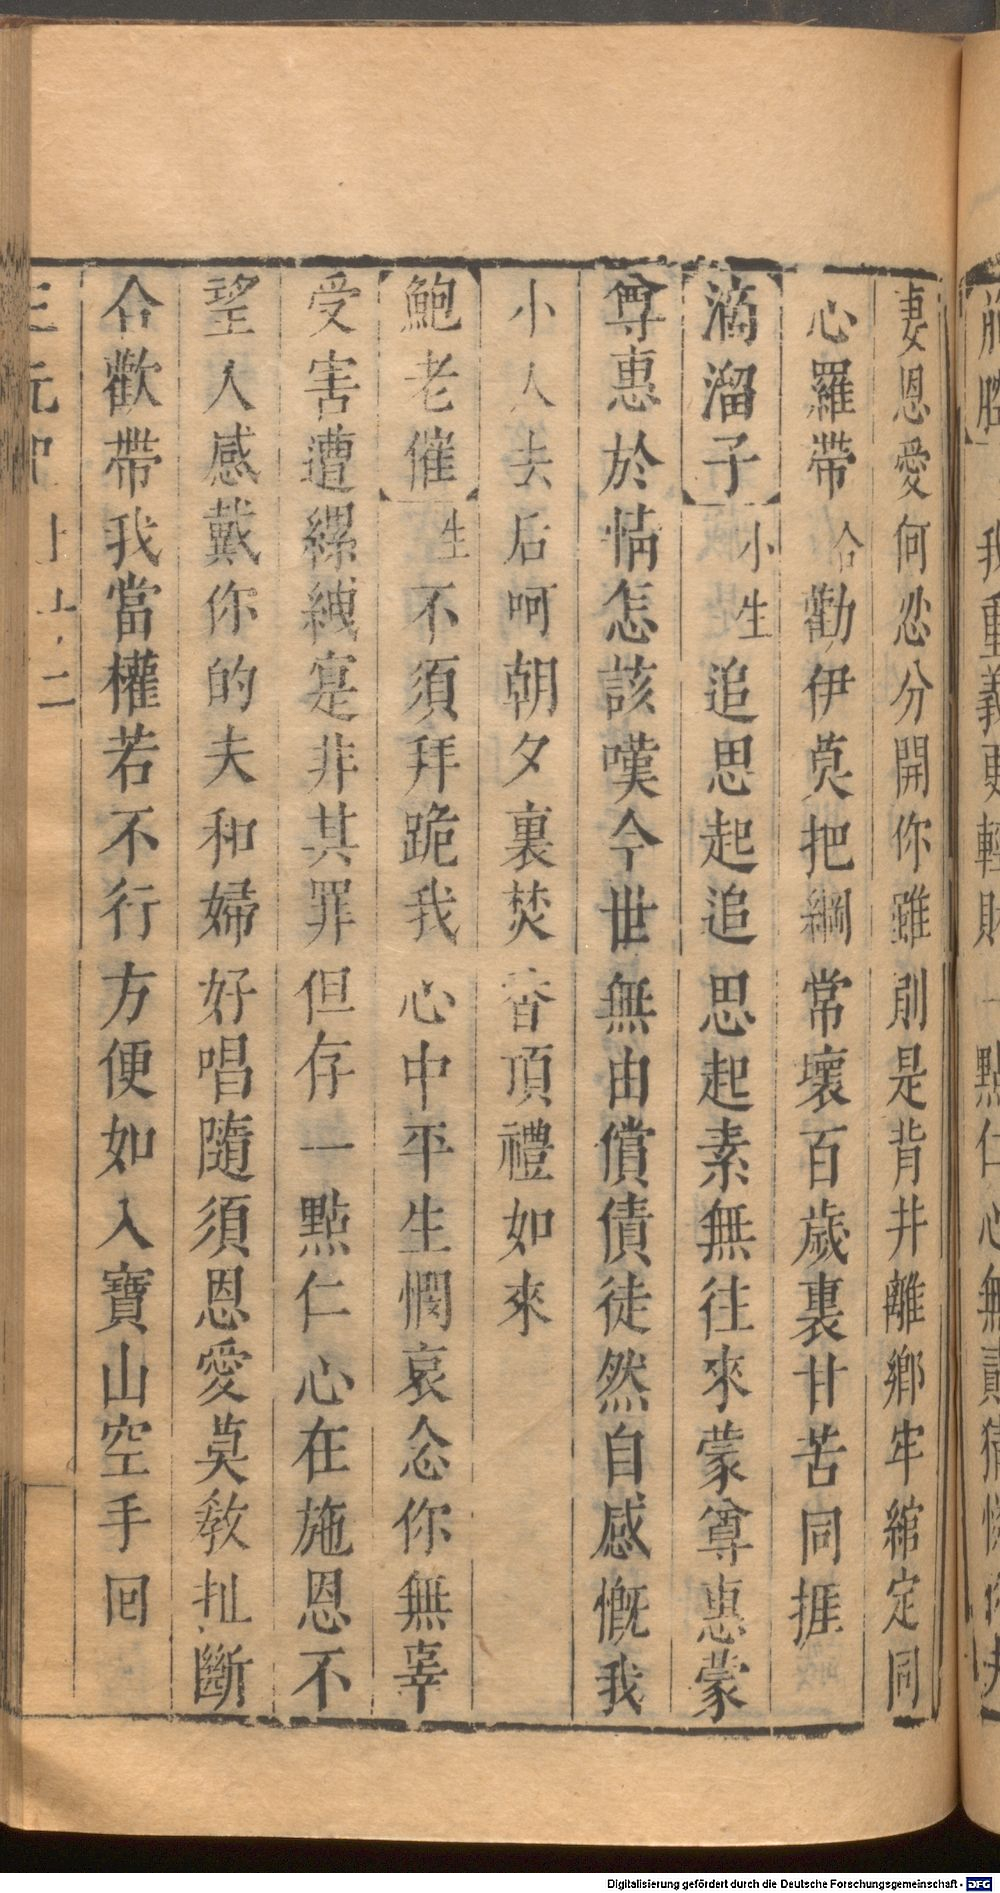 胸膛 我重義更輕財一點仁心無
妻恩愛何忍分開你雖則是背井離鄉牢綰定同
心羅帶合勸伊莫把綱常壞百歲裏甘苦同捱
滴溜子小生追思起追思起素無往來蒙尊惠蒙
尊惠於情怎該嘆今世無由償債徒然自感慨我
小人去后呵朝夕裏焚香頂禮如來
鮑老催生不須拜跪我心中平生憫哀念你無辜
受害遭縲絏寔非其罪但存一點仁心在施恩不
望人感戴你的夫和婦好唱隨須恩愛莫教扯斷
合歡帶我當權若不行方便如入寶山空手回
三元記
二
Digitalisierung gefördert durch die Deutsche Forschungsgemeinschaft - DFG